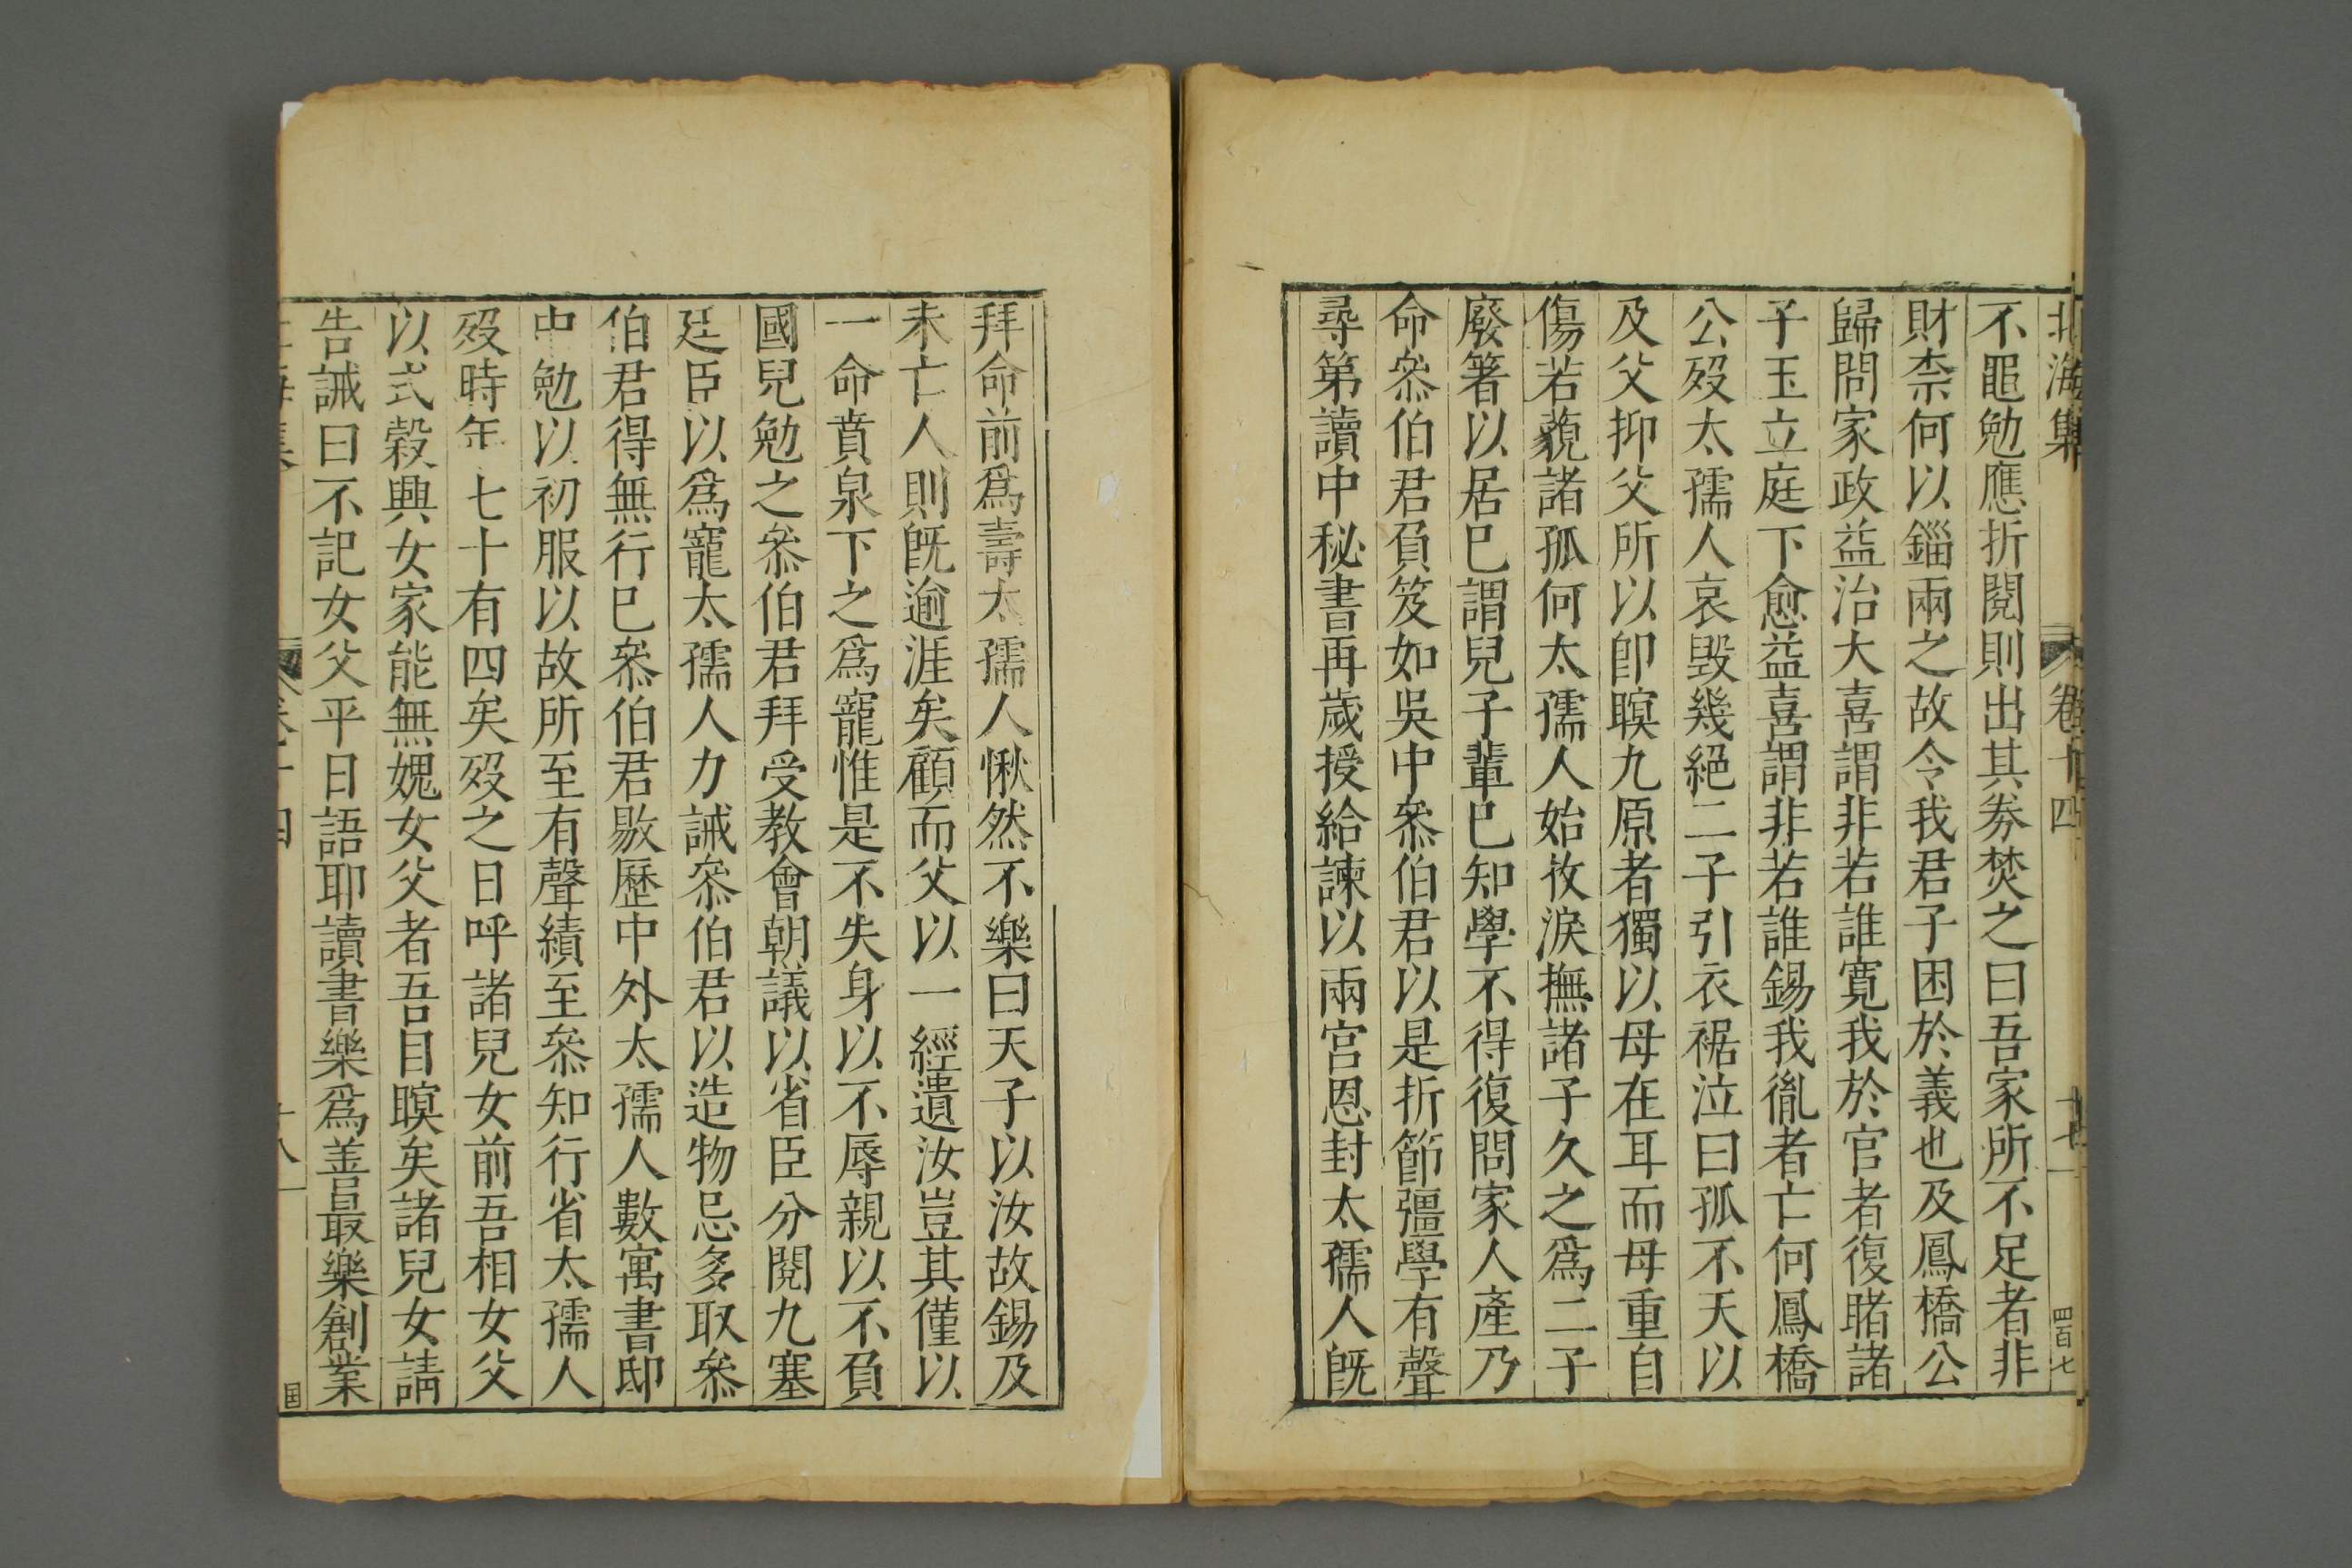 北海集 卷十四 十七 四百七
不黽勉應折閱則出其券焚之曰吾家所不足者非
財柰何以錙兩之故令我君子困於義也及鳳橋公
歸問家政益治大喜謂非若誰寛我於官者復睹諸
子玉立庭下愈益喜謂非若誰錫我胤者亡何鳳橋
公歿太孺人哀毀幾絕二子引衣裾泣曰孤不天以
及父抑父所以卽瞑九原者獨以母在耳而母重自
傷若藐諸孤何太孺人始收淚撫諸子久之爲二子
廢箸以居巳謂兒子輩巳知學不得復問家人產乃
命叅伯君負笈如吳中叅伯君以是折節彊學有聲
尋第讀中秘書再歲授給諫以兩宮恩封太孺人旣
拜命前爲壽太孺人愀然不樂曰天子以汝故錫及
未亡人則旣逾涯矣顧而父以一經遺汝豈其僅以
一命賁泉下之爲寵惟是不失身以不辱親以不負
國兒勉之叅伯君拜受教會朝議以省臣分閱九塞
廷臣以爲寵太孺人力誡叅伯君以造物忌多取叅
伯君得無行巳叅伯君敭歷中外太孺人數寓書邸
中勉以初服以故所至有聲績至叅知行省太孺人
歿時年七十有四矣歿之日呼諸兒女前吾相女父
以式穀興女家能無媿女父者吾目瞑矣諸兒女請
告誡曰不記女父平日語耶讀書樂爲善最樂創業
海集 卷十四 十八 国